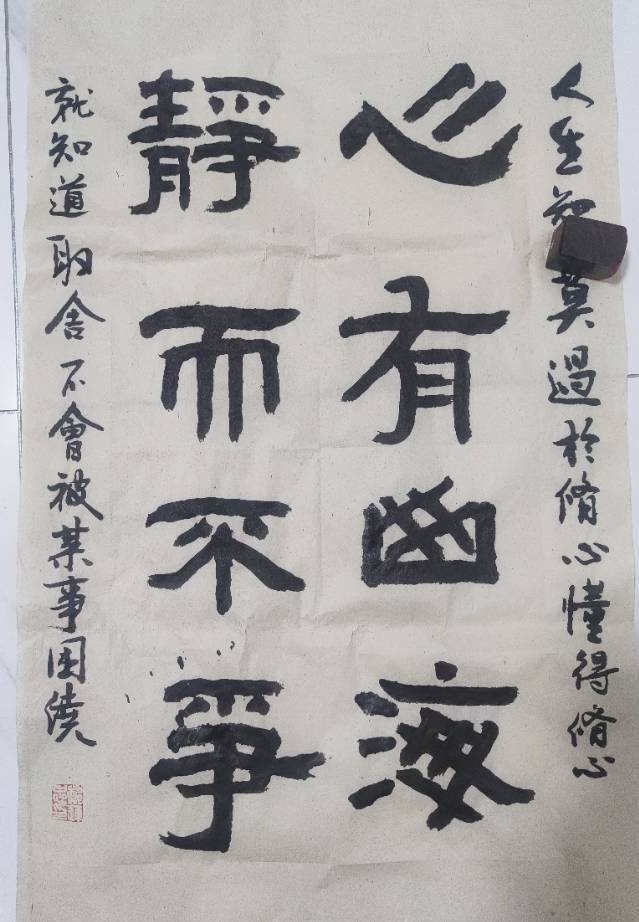 人生莫過於脩心懂得脩心
心有幽海
靜而不爭
就知道取舍不會被某事困繞